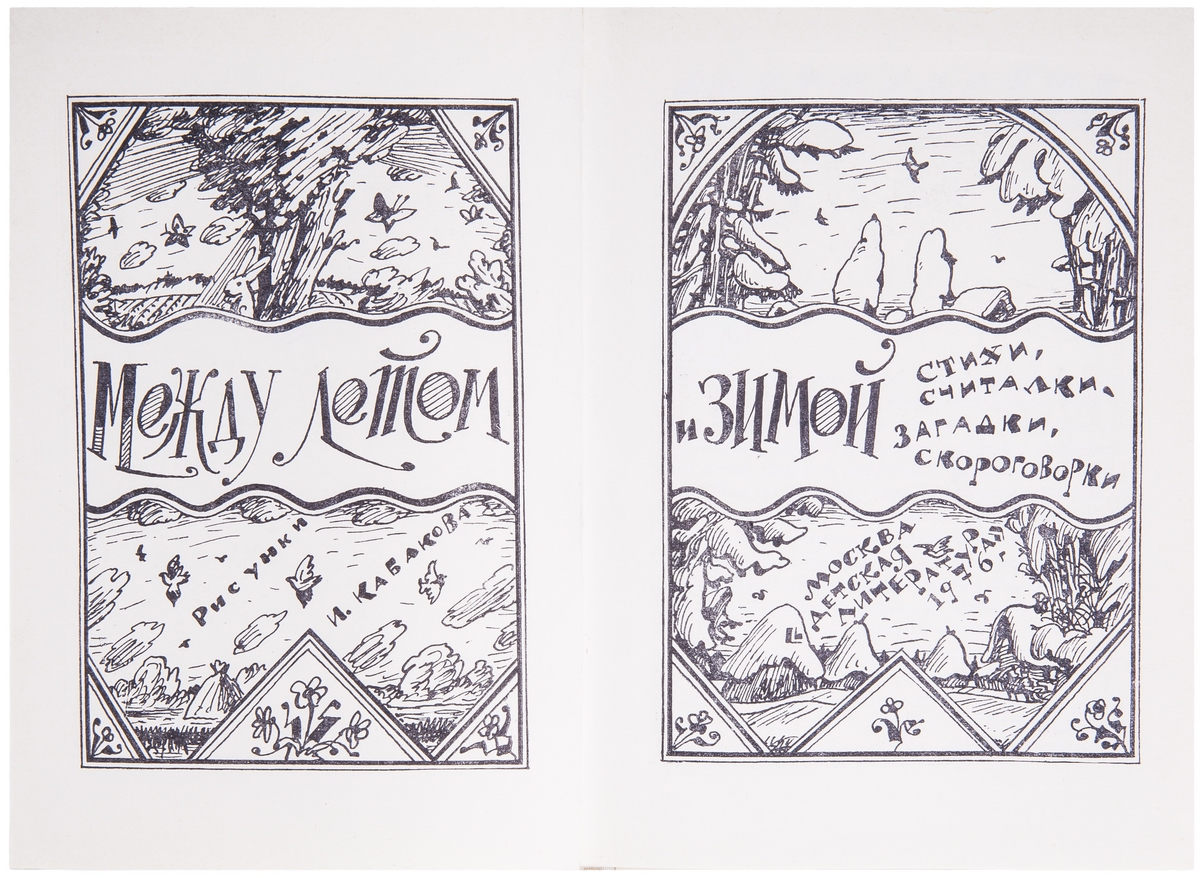 Между летом
Рисунки
И. Кабакова
и зимой
стихи,
считалки,
загадки,
скороговорки
Москва
Детская
литература
1976 г.